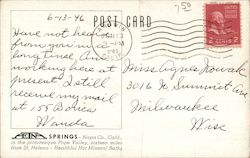 6-13-46
POST CARD
750
JUN 13
PM
Have not heard
from you in a
long time. Am
working here at
present I still
receive my mail
at 155 Bonita
Wanda
Miss Agnes Nowak
3016 N. Summit Ave
Milwaukee
Wisc
ÆTNA SPRINGS - Napa Co., Calif.,
in the picturesque Pope Valley, sixteen miles
from St. Helena - Healthful Hot Mineral Baths
2 CENTS 2